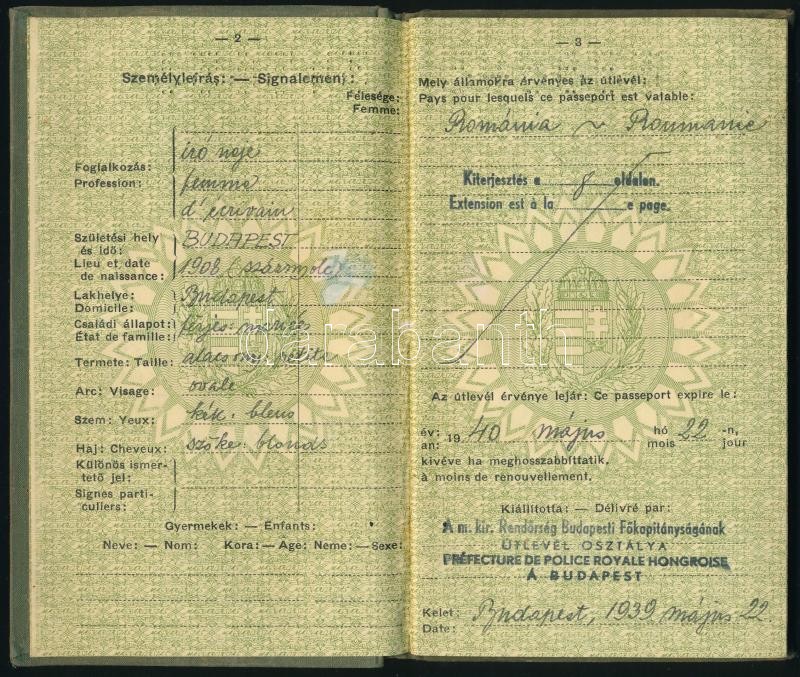 — 2 —
Személyleírás: — Signalement:
Felesége:
Femme:
író neje
Foglalkozás:
Profession:
femme
d'écrivain
Születési hely
és idő:
Lieu et date
de naissance:
BUDAPEST
1908
Lakhelye:
Domicile:
Budapest
Családi állapot:
État de famille:
férjes: mariée
Termete: Taille:
alacsony: petite
Arc: Visage:
ovale
Szem: Yeux:
kék: bleus
Haj: Cheveux:
szőke: blonds
Különös ismer-
tető jel:
Signes parti-
culiers:
Gyermekek: — Enfants:
Neve: — Nom: Kora: — Age: Neme: — Sexe:
— 3 —
Mely államokra érvényes az útlevél:
Pays pour lesquels ce passeport est valable:
Románia ~ Roumanie
Kiterjesztés a 8 oldalon.
Extension est à la e page.
Az útlevél érvénye lejár: Ce passeport expire le:
év: 1940 május hó 22 -n,
an: mois jour
kivéve ha meghosszabbíttatik.
à moins de renouvellement.
Kiállította: — Délivré par:
A m. kir. Rendőrség Budapesti Főkapitányságának
ÚTLEVÉL OSZTÁLYA
PRÉFECTURE DE POLICE ROYALE HONGROISE
À BUDAPEST
Kelet:
Date:
Budapest, 1939 május 22.
darabanth